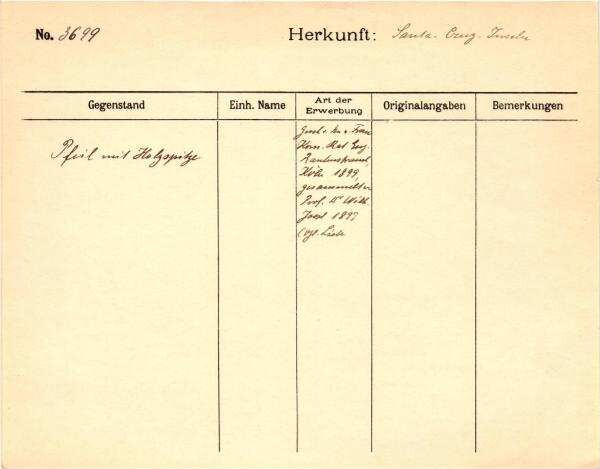 No. 3699 Herkunft: Santa. Cruz. Inseln
Gegenstand Einh. Name Art der Erwerbung Originalangaben Bemerkungen
Pfeil mit Holzspitze
Gesch. v. Frau
Kom. Rat Eug.
Rautenstrauch
Köln 1899,
gesammelt v.
Prof. Dr Wilh.
Joest 1897
(vgl. Liste